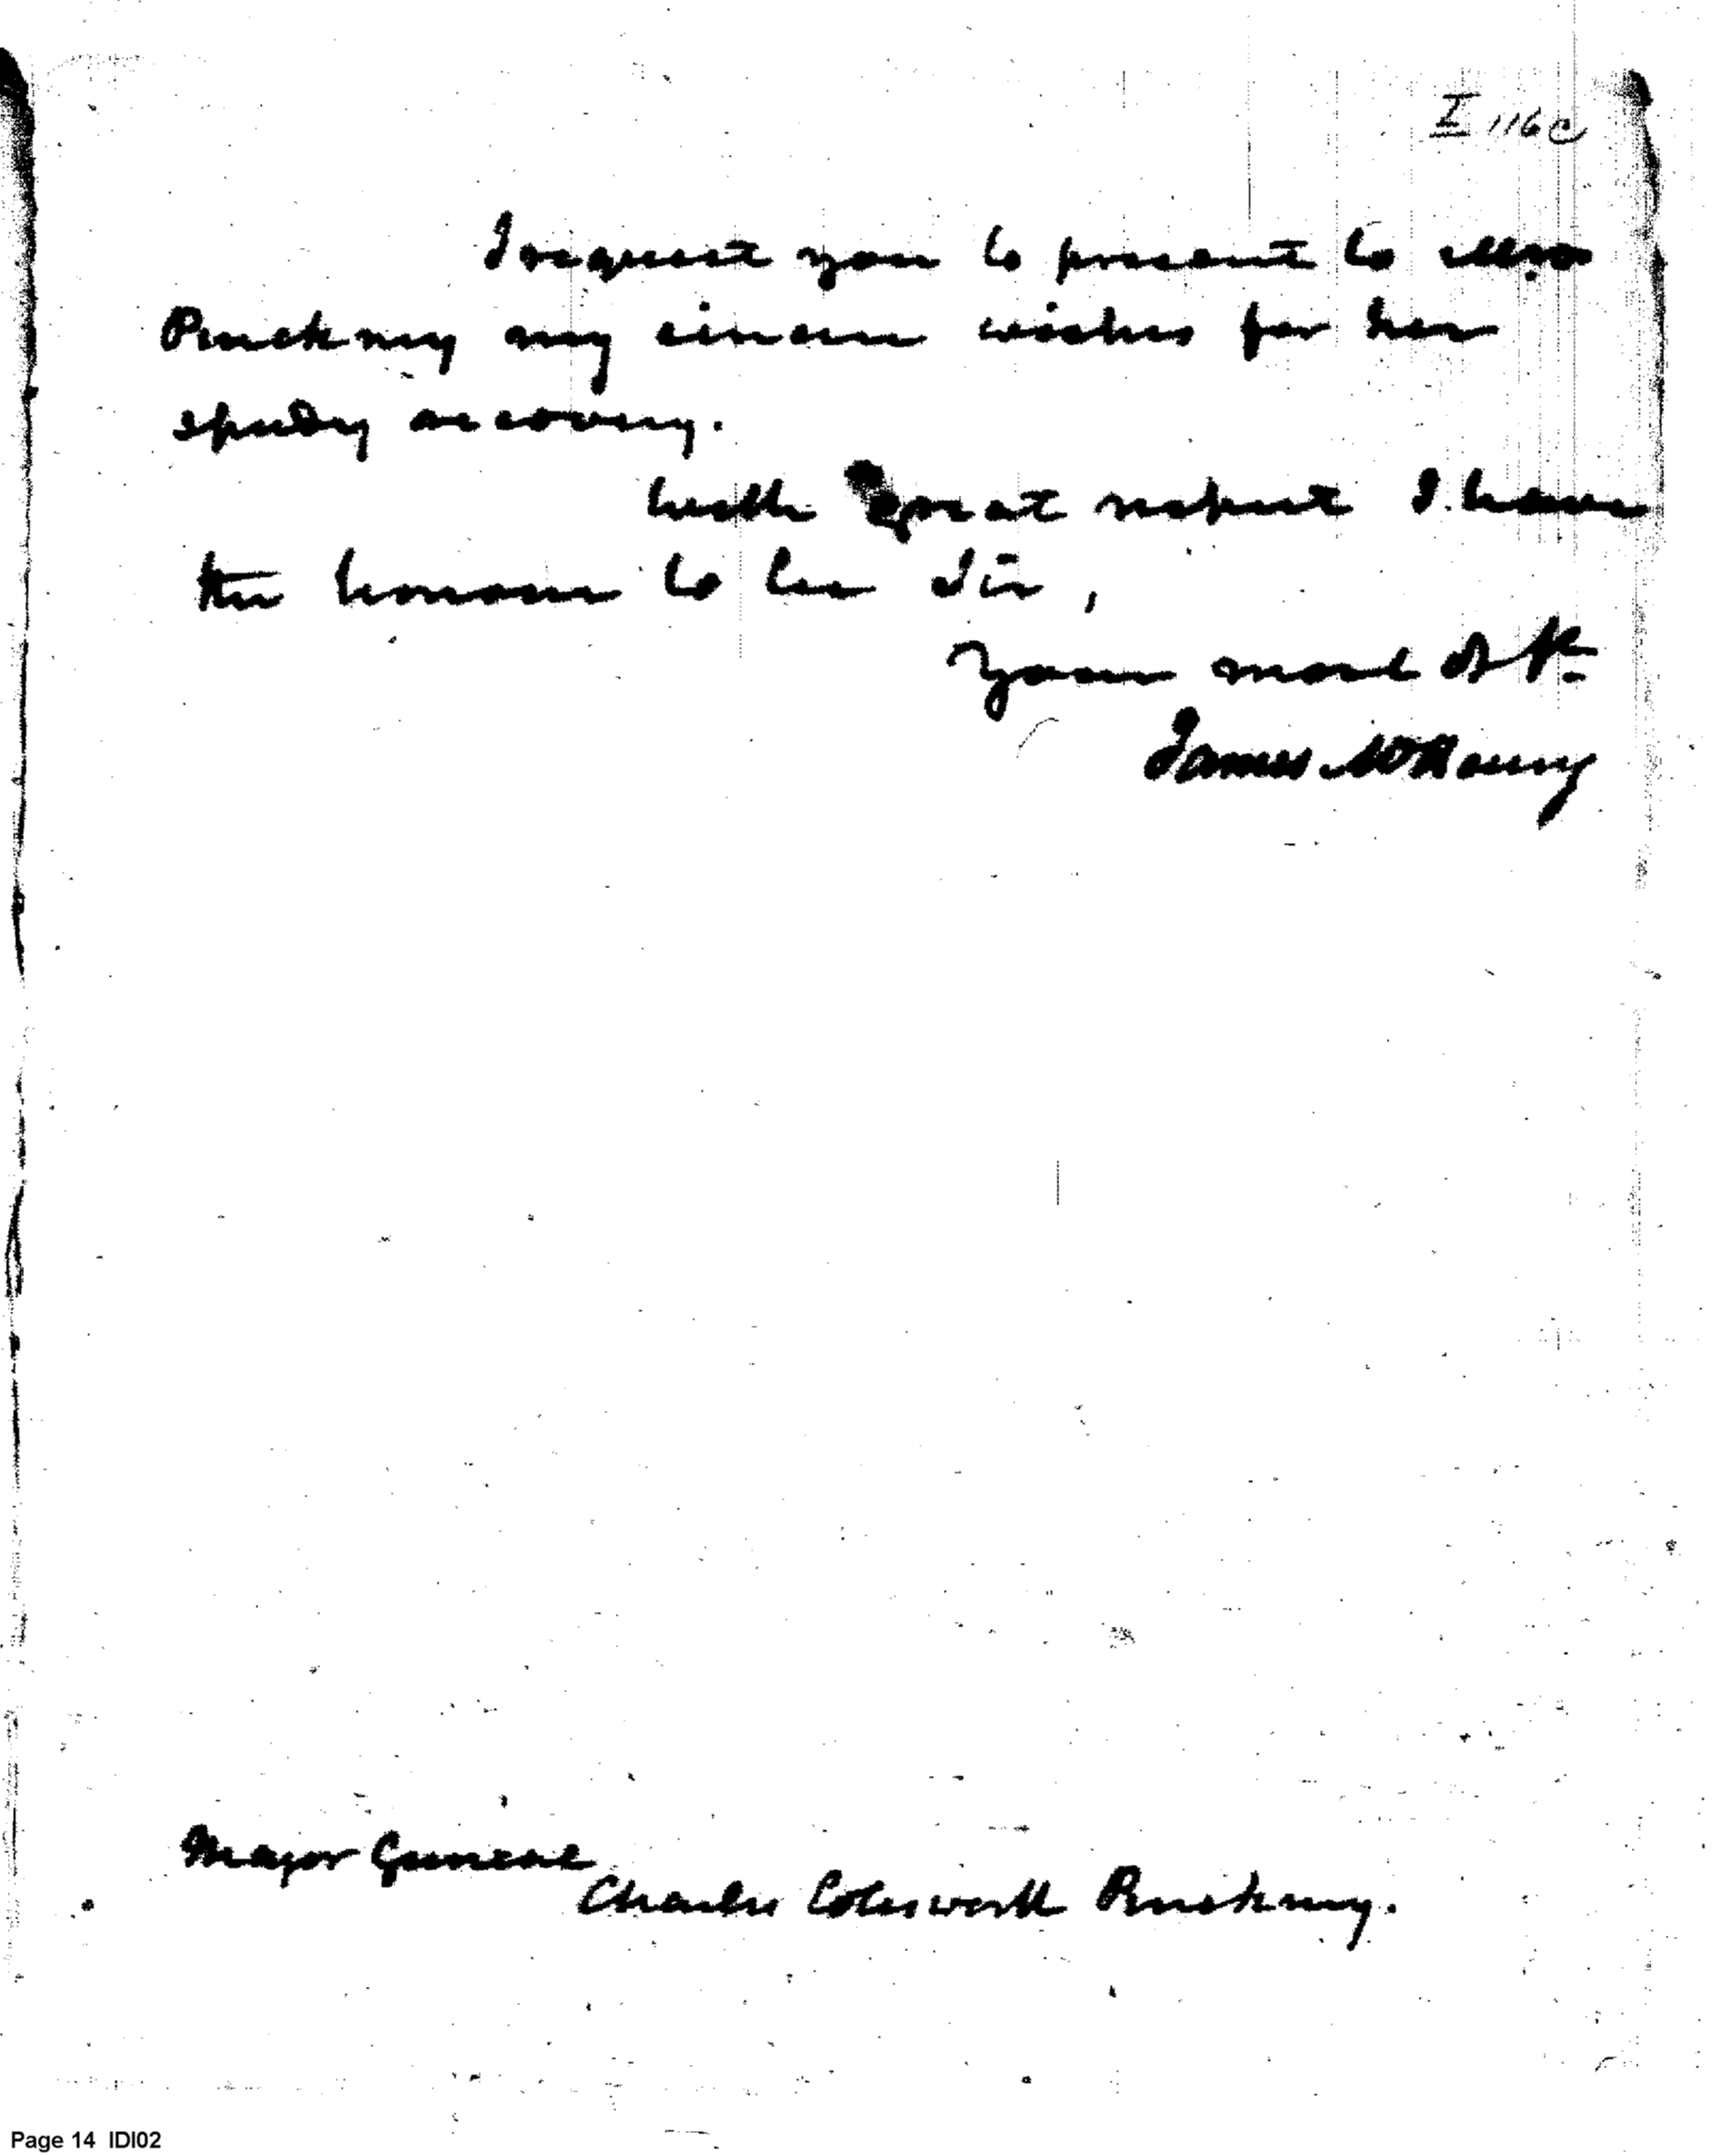 I 116c
I request you to present to Mrs
Pinckney my sincere wishes for her
speedy recovery.
With great respect I have
the honour to be Sir,
Your most Ob St.
James McHenry
Major General
Charles Cotesworth Pinckney.
Page 14 IDI02